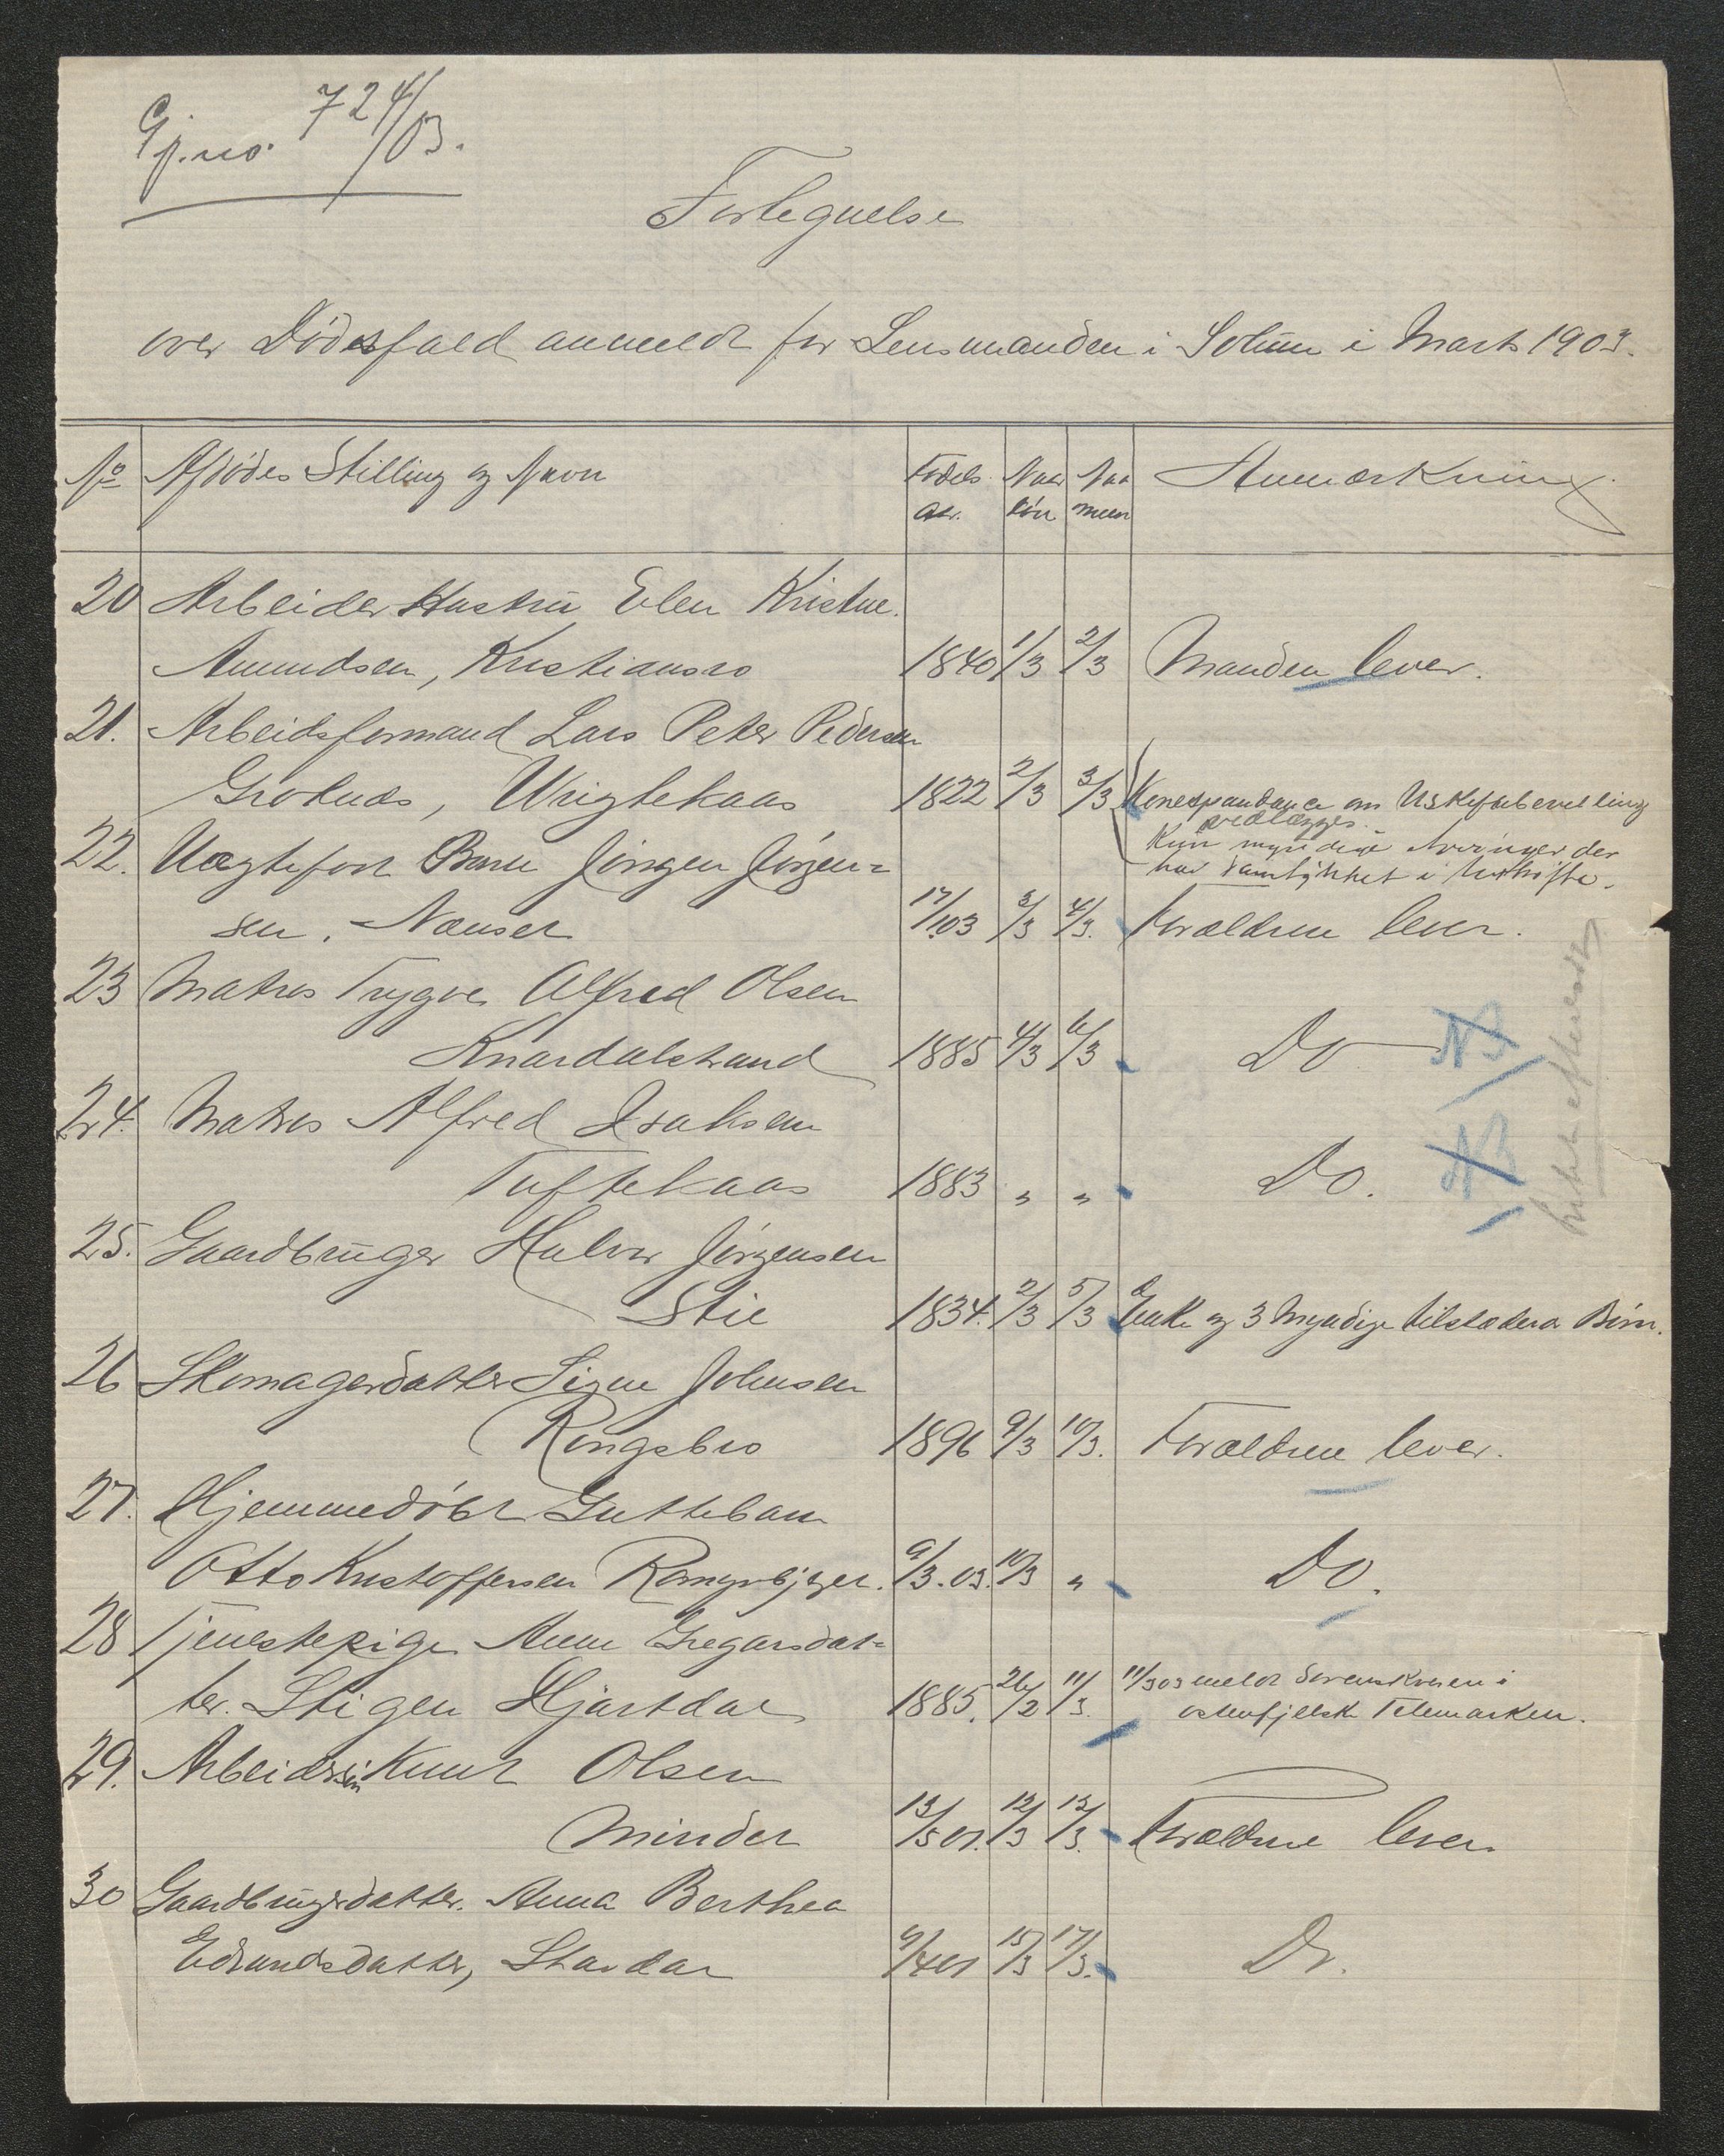 Gj.no. 724/03.
Fortegnelse
over Dødsfald anmeldt for Lensmanden i Solum i Marts 1903.
No Afdødes Stilling og Navn Fødels aar. Naar død Naar meldt Anmærkning.
20 Arbeider Hustru Elen Kristine
Amundsen, Kristiansro 1840 1/3 2/3 Manden lever.
21. Arbeidsformand Lars Peter Pedersen
Grotnæs, 1822 2/3 3/3 Korrespondance om Uskiftebevilling
vedlægges.
Kun myndige Arvinger der
har samtykket i Uskifte.
22. Uægtefødt Barn Jørgen Jørgen-
sen. Nænset 17/103 3/3 4/3. Forældrene lever.
23 Matros Trygve Alfred Olsen
Knardalstrand 1885 4/3 6/3 Do NB
24. Matros Alfred Isaksen
Tuftekaas 1883 " " Do. NB
intet efterladt
25. Gaardbruger Halvor Jørgensen
Stie 1834. 2/3 5/3 Enke og 3 Myndige tilstedevær. Børn.
26 Skomagerdatter Signe Johnsen
Kongsbro 1896 9/3 10/3. Forældrene lever.
27. Hjemmedøbt Guttebarn
Otto Kristoffersen 9/3.03. 10/3 " Do.
28 Tjenestepige Anne Gregarsdat-
ter. Stigen Hjartdal 1885. 26/2 11/3. 11/303 meldt Sorenskriveren i
østenfjelsk Telemarken.
29. Arbeidersøn Knut Olsen
Minder 13/501. 12/3 13/3. Forældrene lever.
30 Gaardbrugerdatter. Anna Berthea
Edvandsdatter, Skardal 9/401 15/3 17/3. Do.